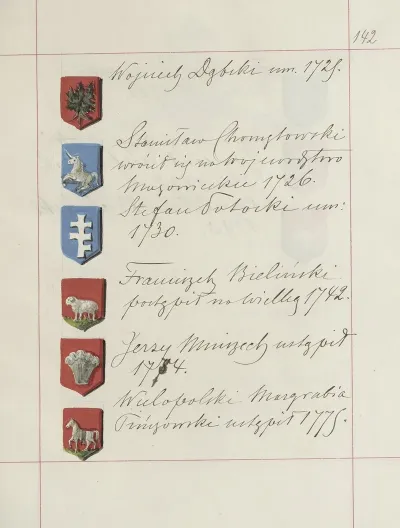 142
Wojciech Dąbski um. 1725.
Stanisław Chomętowski
wrócił się na województwo
Mazowieckie 1726.
Stefan Potocki um:
1730.
Franciszek Bieliński
postąpił na Wielkg 1742.
Jerzy Mniszech ustąpił
17 4.
Wielopolski Margrabia
Pinczowski ustąpił 1775.